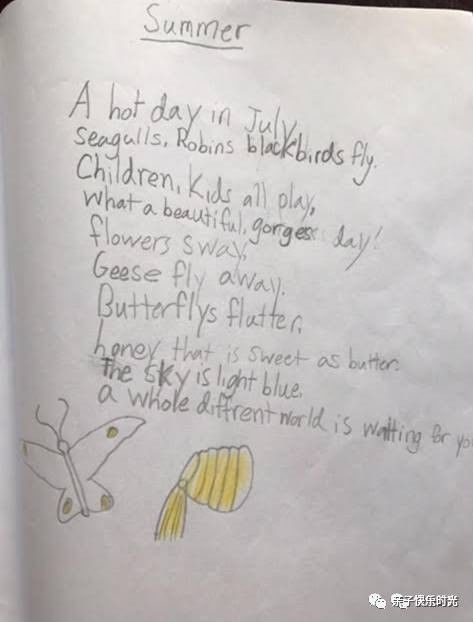 Summer
A hot day in July,
Seagulls, Robins blackbirds fly.
Children, Kids all play,
What a beautiful, gorges day!
flowers sway,
Geese fly away.
Butterflys flutter,
honey that is sweet as butter.
The sky is light blue,
a whole diffrent world is waiting for you
亲子快乐时光